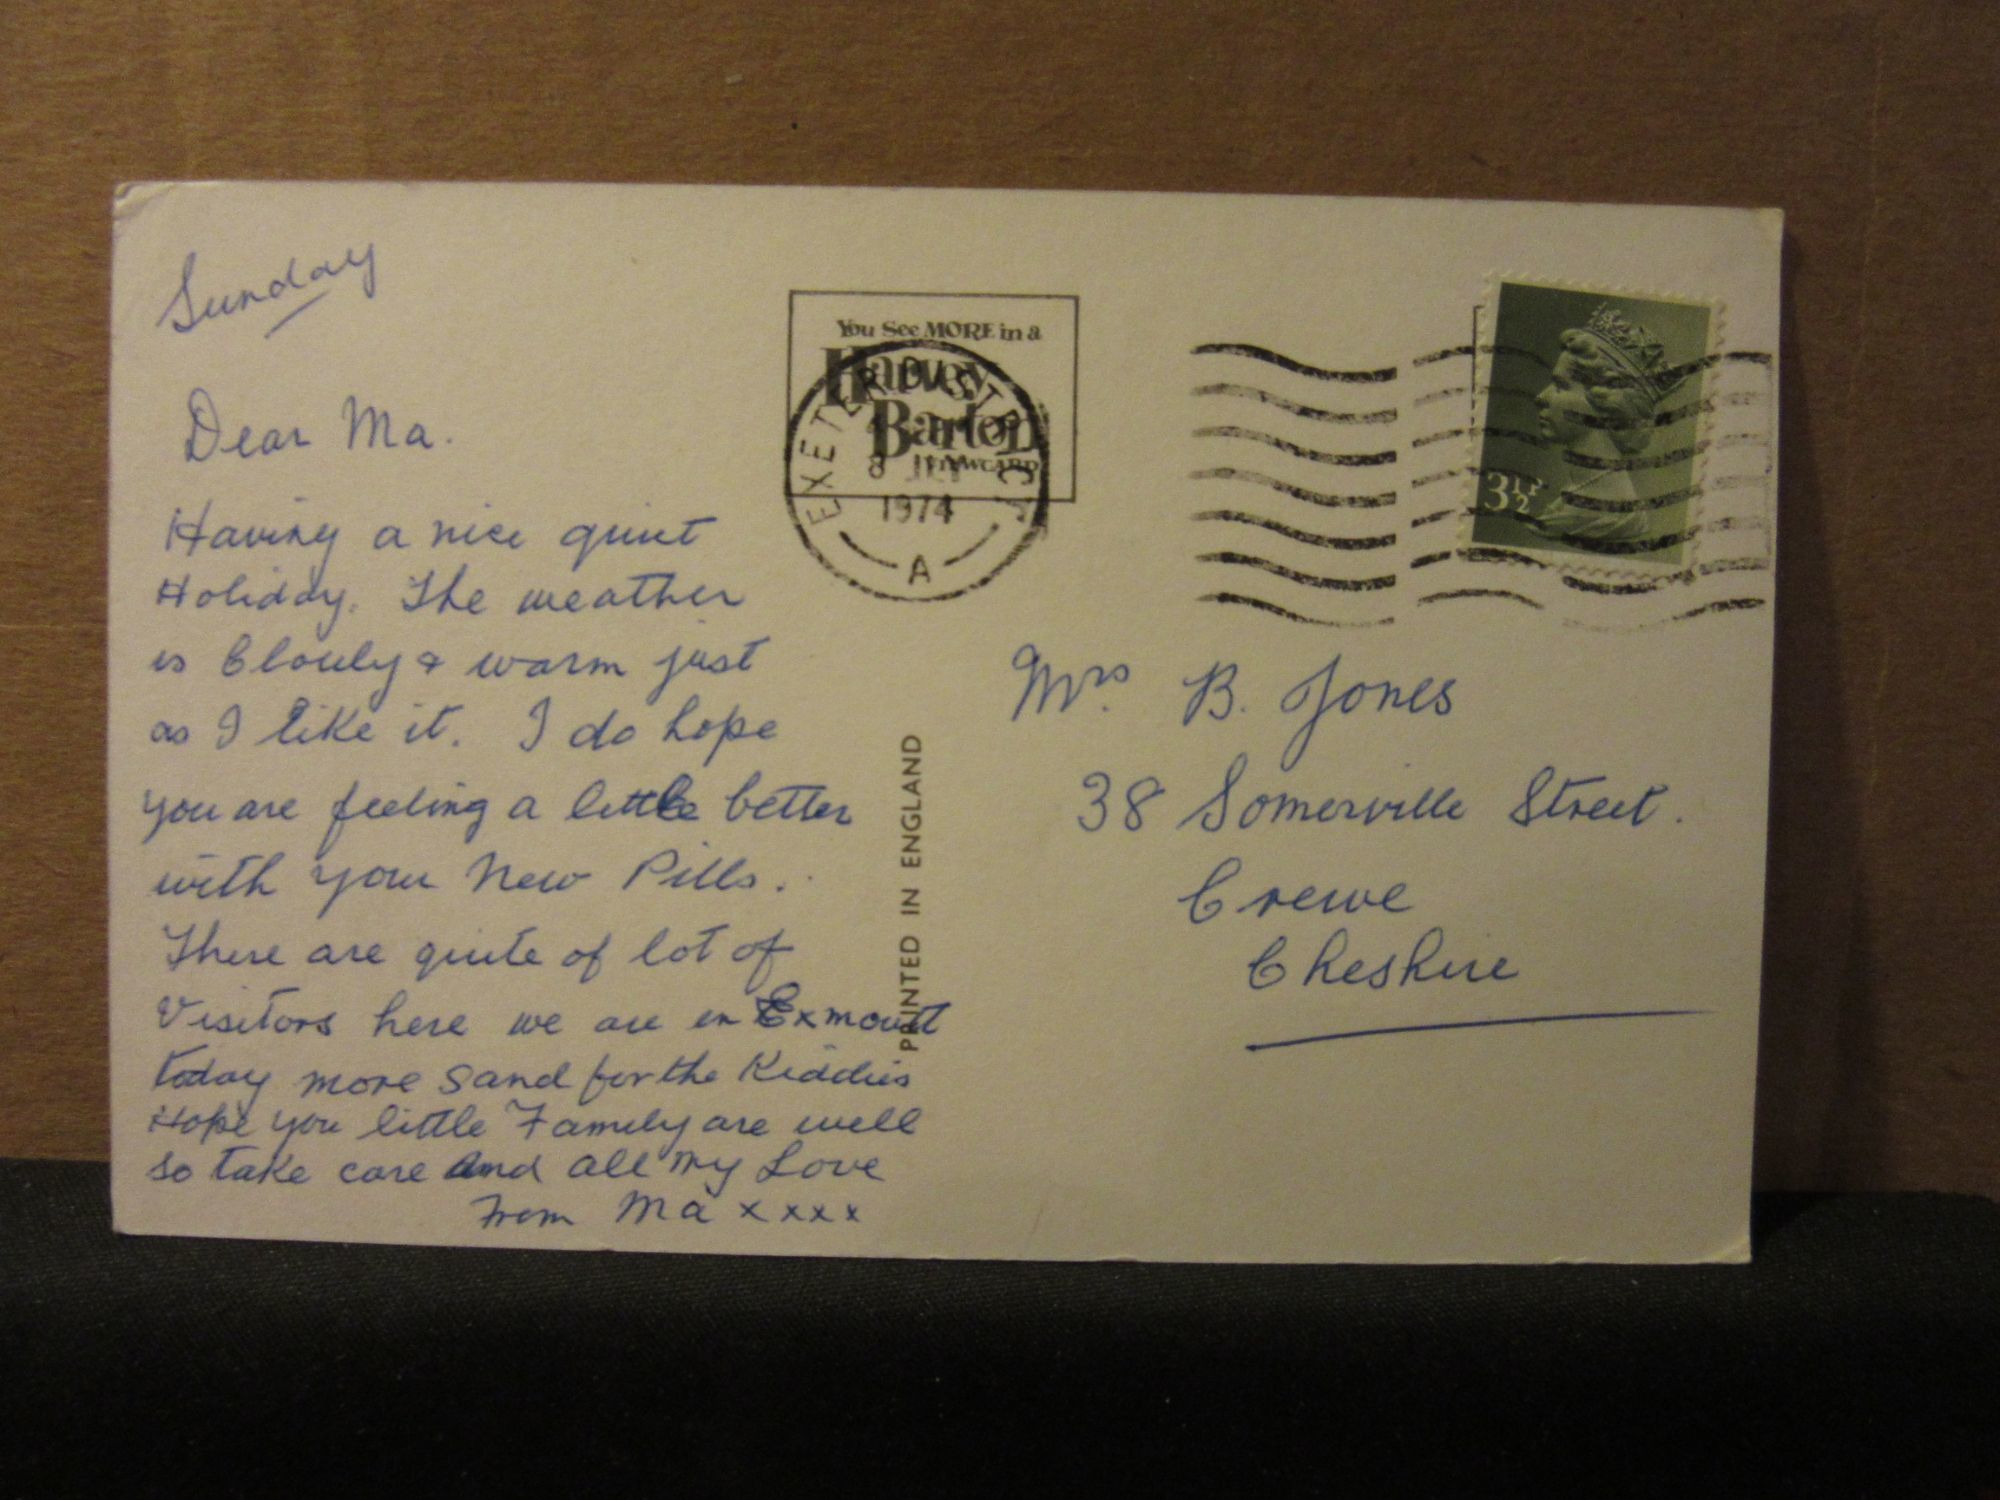 Sunday
Dear Ma.
Having a nice quiet
Holiday. The weather
is Clouly & warm just
as I like it. I do hope
you are feeling a little better
with your New Pills.
There are quite of lot of
Visitors here we are in Exmout
today more sand for the Kiddies
Hope you little Family are well
so take care and all my Love
From Ma x x x x
You See MORE in a
Harvey
Barton
VIEWCARD
EXETER DISTRICT
8
1974
A
PRINTED IN ENGLAND
3½P
Mrs B. Jones
38 Somerville Street.
Crewe
Cheshire